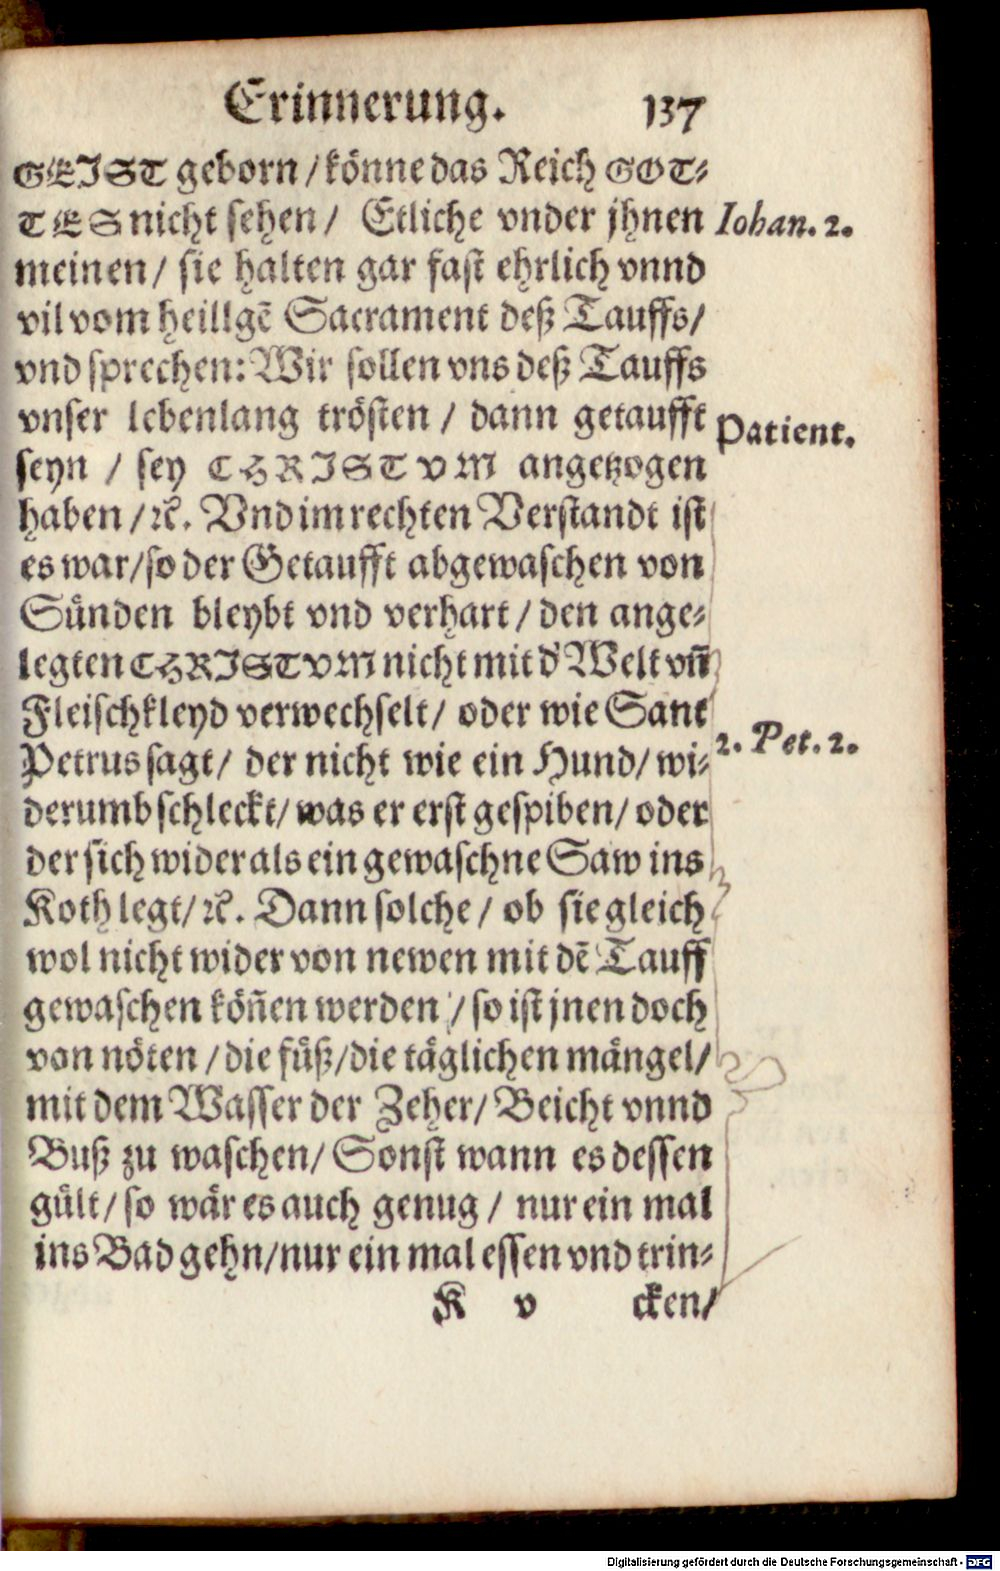 Erinnerung. 137
GEIST geborn / könne das Reich GOT-
TES nicht sehen / Etliche vnder jhnen
Iohan. 2.
meinen / sie halten gar fast ehrlich vnnd
vil vom heillgẽ Sacrament deß Tauffs /
vnd sprechen: Wir sollen vns deß Tauffs
vnser lebenlang trösten / dann getaufft
Patient.
seyn / sey CHRISTVM angetzogen
haben / ꝛc. Vnd im rechten Verstandt ist
es war / so der Getaufft abgewaschen von
Sünden bleybt vnd verhart / den ange-
legten CHRISTVM nicht mit d' Welt vñ
Fleischkleyd verwechselt / oder wie Sant
2. Pet. 2.
Petrus sagt / der nicht wie ein Hund / wi-
derumb schleckt / was er erst gespiben / oder
der sich wider als ein gewaschne Saw ins
Koth legt / ꝛc. Dann solche / ob sie gleich
wol nicht wider von newen mit dẽ Tauff
gewaschen köñen werden / so ist jnen doch
von nöten / die füß / die täglichen mängel /
mit dem Wasser der Zeher / Beicht vnnd
Buß zu waschen / Sonst wann es dessen
gült / so wär es auch genug / nur ein mal
ins Bad gehn / nur ein mal essen vnd trin-
K v cken /
Digitalisierung gefördert durch die Deutsche Forschungsgemeinschaft - DFG